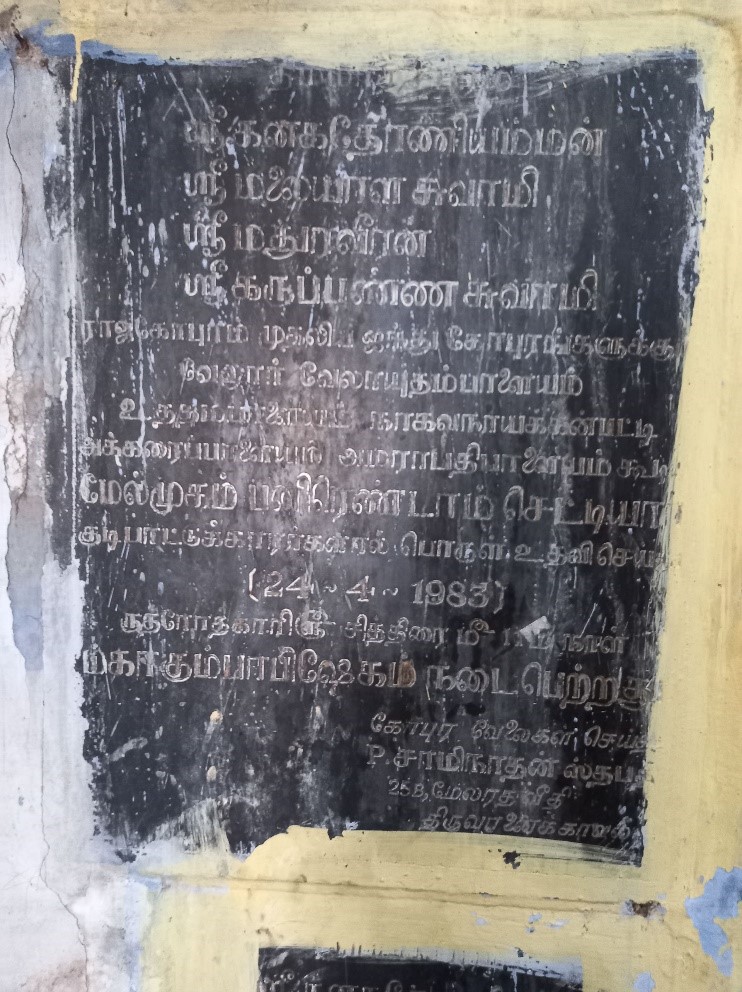 ஸ்ரீ கனகதோணியம்மன்
ஸ்ரீ மலையாள சுவாமி
ஸ்ரீ மதுரவீரன்
ஸ்ரீ கருப்பண்ண சுவாமி
ராஜகோபுரம் முதலிய ஐந்து கோபுரங்களுக்கு
வேலூர் வேலாயுதம்பாளையம்
நாகவநாயக்கன்பட்டி
அக்கரைப்பாளையம் அமராபதிபாளையம்
மேல்முகம் பனிரெண்டாம் செட்டியார்
குடிபாட்டுக்காரர்களால் பொருள் உதவி
(24 ~ 4 ~ 1983)
ருத்ரோத்காரி ௵ சித்திரை மீ நாள்
மகாகும்பாபிஷேகம் நடைபெற்றது
கோபுர வேலைகள்
P. சாமிநாதன் ஸ்தபதி
25B, மேலரத வீதி